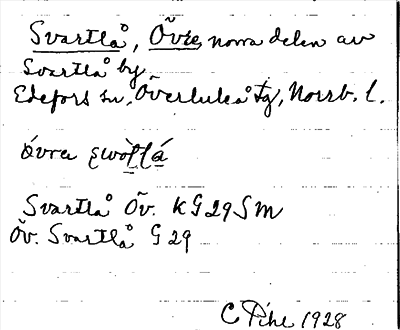 Svartlå, Övre, norra delen av
Svartlå by
Edefors sn, Överluleå tg, Norrb. l.
óvra
Svartlå Öv. KG29SM
Öv. Svartlå G29
C Pihl 1928